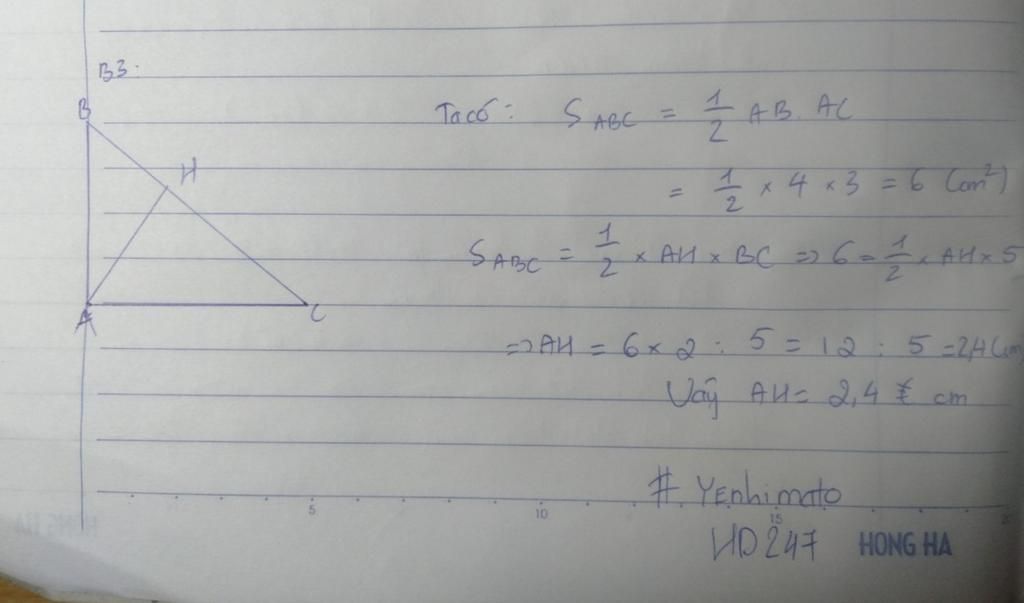 B3.
B
H
A
C
Ta có: S ABC = 1/2 AB. AC
= 1/2 × 4 × 3 = 6 (cm²)
S ABC = 1/2 × AH × BC => 6 = 1/2 × AH × 5
=> AH = 6 × 2 : 5 = 12 : 5 = 2,4 (cm)
Vậy AH = 2,4 cm
5
10
15
# Yenhimato
HD247
HONG HA